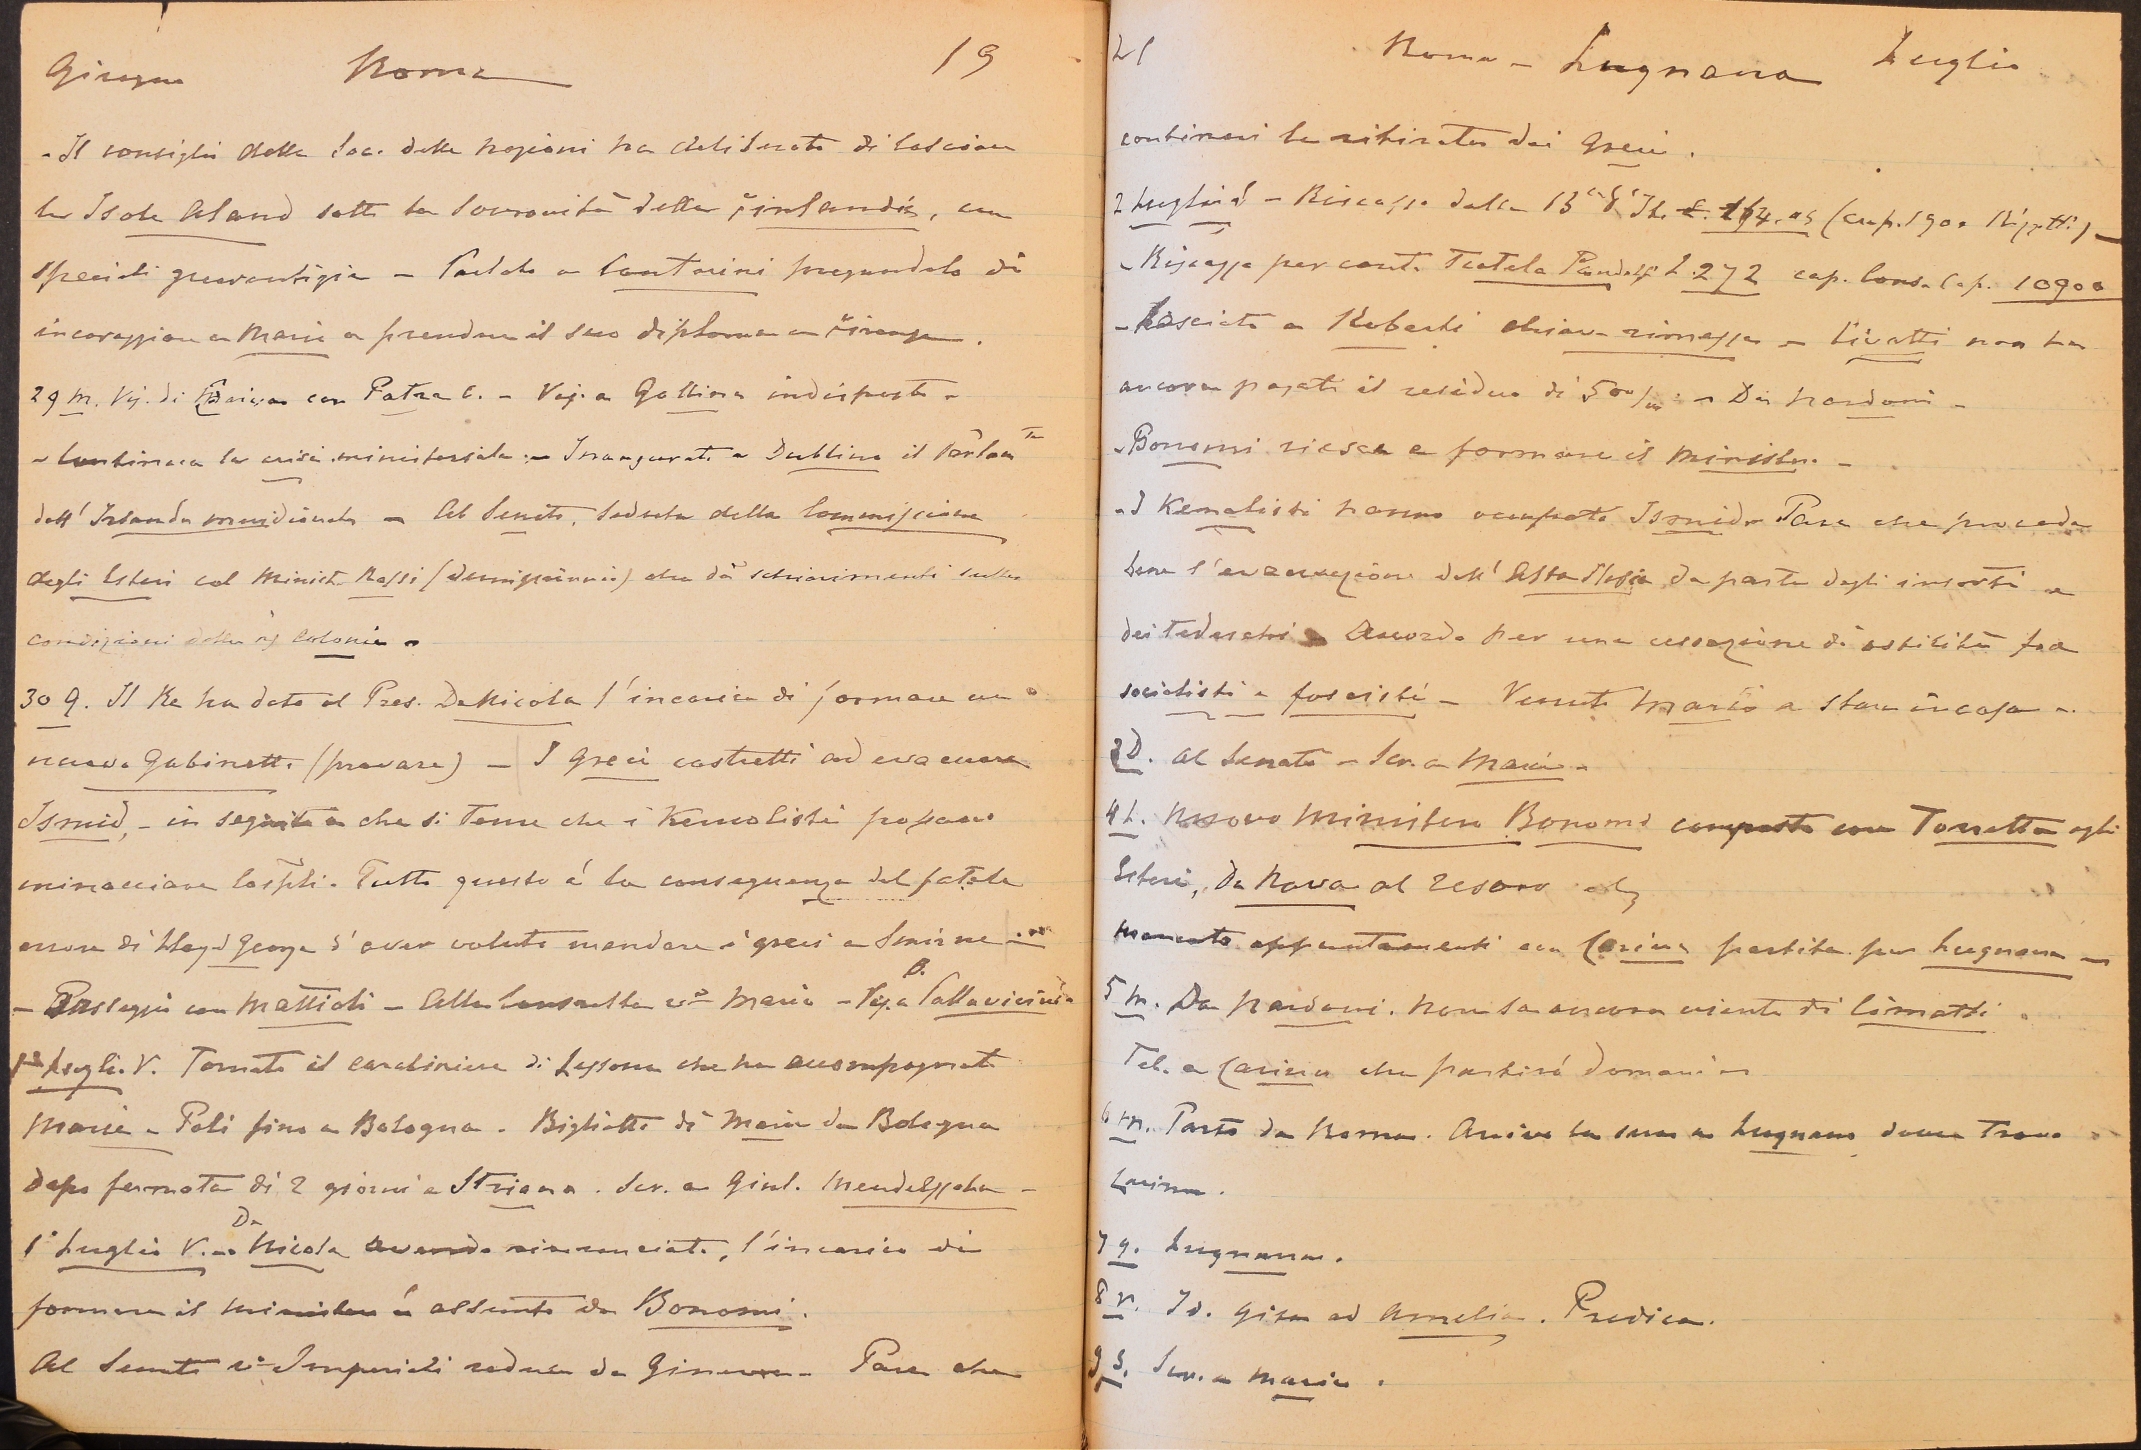 Giugno Roma 19
- Il consiglio della Soc. delle Nazioni ha deliberato di lasciare
le Isole Aland sotto la sovranità della Finlandia, con
speciali guarentigie - Parlato a Contarini pregandolo di
incoraggiare a Maria a prendere il suo diploma a Firenze.
29 M. Vis. di con - Vis. a Gallina indisposto -
- Continua la crisi ministeriale - Inaugurato a Dublino il Parlamto
dell'Irlanda meridionale - Al Senato, seduta della Commissione
degli Esteri col Ministro Rossi (dimissionario) che dà schiarimenti sulle
condizioni delle Colonie -
30 G. Il Re ha dato al Pres. De Nicola l'incarico di formare un
nuovo Gabinetto (provare) - I Greci costretti ad evacuare
Ismid, - in seguito a che si teme che i Kemalisti possano
minacciare Cospli. Tutto questo è la conseguenza del fatale
errore di Lloyd George d'aver voluto mandare i greci a Smirne -
- Passeggio con Mattioli - Alla Consulta vo Maria - Vis. a P. Pallavicini
1o Luglio V. Tornato il carabiniere di Lessona che ha accompagnato
Maria e Poli fino a Bologna. Biglietto di Maria da Bologna
dopo fermata di 2 giorni a Striana. Scr. a Giul. Mendelssohn -
1o Luglio V. - De Nicola avendo rinunciato, l'incarico di
formare il ministero è assunto da Bonomi.
Al Senato vo Imperiali reduce da Ginevra - Pare che
21 Roma - Lugnano Luglio
continui la ritirata dei Greci.
2 Luglio S - Riscosso dalla L. 164.05 (cup. 1900 )
- Riscosso per conto Tutela Pandolfi L. 272 cap. Cons. Cap. 10900
- Lasciato a Roberti chiave rimessa - Civatti non ha
ancora pagato il residuo di 500/m - Da Nardoni -
- Bonomi riesce a formare il Ministero -
- I Kemalisti hanno occupato Ismid - Pare che proceda
bene l'evacuazione dell'Alta Slesia da parte degli insorti e
dei tedeschi - Accordo per una cessazione di ostilità fra
socialisti e fascisti - Venuto Mario a stare in casa -
3 D. Al Senato - Scr. a Maria -
4 L. Nuovo Ministero Bonomi composto con Torretta agli
Esteri, De Nava al Tesoro
Mancato appuntamenti con Carina partita per Lugnano -
5 M. Da Nardoni. Non sa ancora niente di
Tel. a Carina che partirò domani -
6 M. Parto da Roma. Arrivo la sera a Lugnano dove trovo
Carina.
7 G. Lugnano.
8 V. Id. Gita ad Amelia. Predica.
9 S. Scr. a Maria.